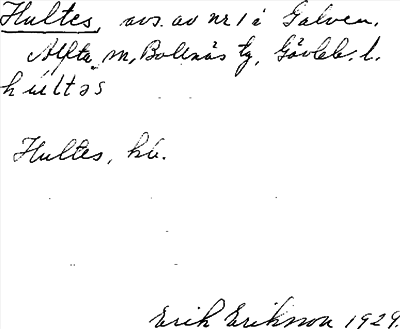 Hultes, avs. av nr 1 i Galven.
Alfta sn, Bollnäs tg, Gävleb. l.
hultəs
Hultes, hö.
Erik Erikson 1929.